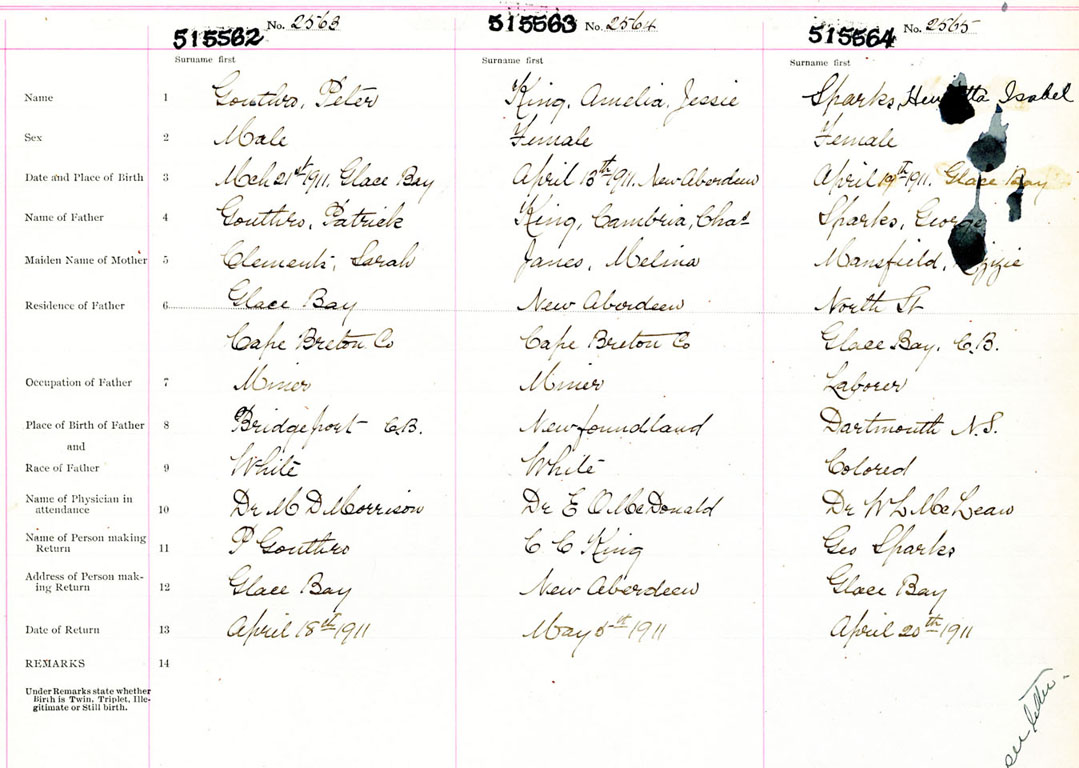 515562 No. 2563 515563 No. 2564 515564 No. 2565
Surname first Surname first Surname first
Name 1 Gouthro, Peter King, Amelia, Jessie Sparks, Henrietta Isabel
Sex 2 Male Female Female
Date and Place of Birth 3 Mch 21st 1911. Glace Bay April 13th 1911. New Aberdeen April 19th 1911. Glace Bay
Name of Father 4 Gouthro, Patrick King, Cambria, Chas Sparks, George
Maiden Name of Mother 5 Clements, Sarah Janes, Melina Mansfield, Lizzie
Residence of Father 6 Glace Bay New Aberdeen North St
Cape Breton Co Cape Breton Co Glace Bay. C.B.
Occupation of Father 7 Miner Miner Laborer
Place of Birth of Father 8 Bridgeport C.B. Newfoundland Dartmouth N.S.
and
Race of Father 9 White White Colored
Name of Physician in
attendance 10 Dr M D Morrison Dr E O McDonald Dr W L McLean
Name of Person making
Return 11 P Gouthro C C King Geo Sparks
Address of Person mak-
ing Return 12 Glace Bay New Aberdeen Glace Bay
Date of Return 13 April 18th 1911 May 5th 1911 April 20th 1911
REMARKS 14
Under Remarks state whether
Birth is Twin, Triplet, Ille-
gitimate or Still birth.
see letter.